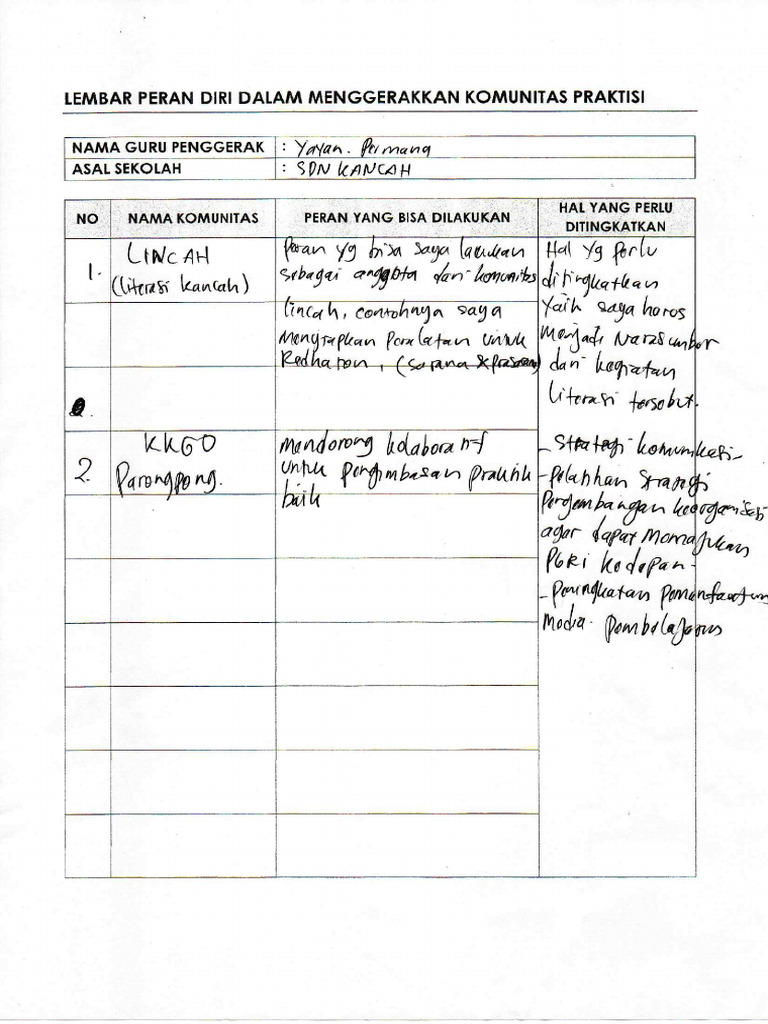 LEMBAR PERAN DIRI DALAM MENGGERAKKAN KOMUNITAS PRAKTISI
NAMA GURU PENGGERAK : Yayan. Permana
ASAL SEKOLAH : SDN KANCAH
NO NAMA KOMUNITAS PERAN YANG BISA DILAKUKAN HAL YANG PERLU DITINGKATKAN
1. LINCAH
(literasi kancah)
Peran yg bisa saya lakukan
sebagai anggota dari komunitas
lincah, contohnya saya
menyiapkan peralatan untuk
Redhaton, (sarana & prasarana)
Hal yg perlu
ditingkatkan
yaih saya harus
menjadi narasumber
dari kegiatan
literasi tersebut.
2. KKGO
Parongpong.
mendorong kolaboratif
untuk pengimbasan praktik
baik
- Strategi komunikasi -
- pelatihan strategi
pengembangan keorganisasi
agar dapat memajukan
PGRI kedepan -
- peningkatan pemanfaatan
media. pembelajaran